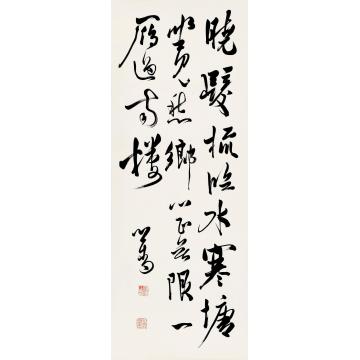 曉髮梳臨水寒塘
坐見秋鄉心正無限一
鴈過南樓
心畬